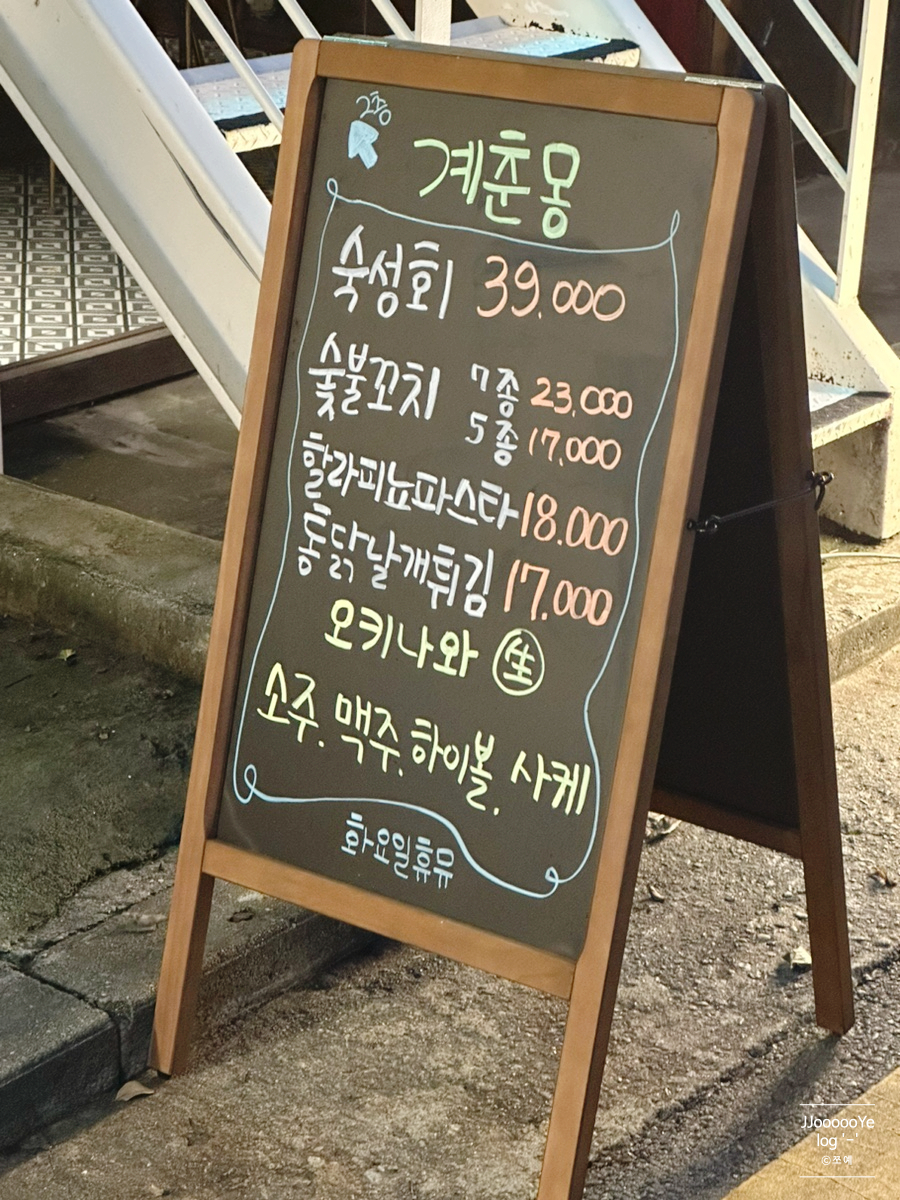 2층
계춘몽
숙성회 39.000
숯불꼬치 7종 23.000
5종 17.000
할라피뇨파스타 18.000
통닭날개튀김 17.000
오키나와 生
소주. 맥주. 하이볼. 사케
화요일휴뮤
JJoooooYe
log '-'
©쪼예